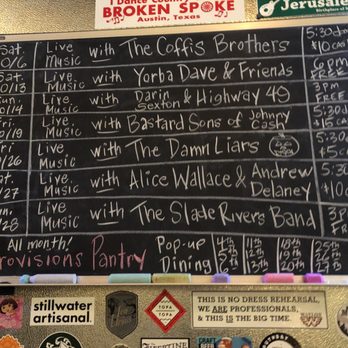 I Dance Country
BROKEN SPOKE
Austin, Texas
Jerusale
Sat. 10/6 Live Music with The Coffis Brothers 5:30 $10
Sat. 10/13 Live Music with Yorba Dave & Friends 6pm FREE
Sun. 10/14 Live Music with Darin Sexton & Highway 49 3pm FREE
Fri. 10/19 Live Music with Bastard Sons of Johnny Cash 5:30
Fri. 10/26 Live Music with The Damn Liars 5:30
Sat. 10/27 Live Music with Alice Wallace & Andrew Delaney 5:30 $10
Sun. 10/28 Live Music with The Slade Rivers Band 3p FREE
All month!
Provisions Pantry Pop-up Dining 4th 5th 11th 12th 13th 18th 19th 20th 25th 26th 27th
stillwater
artisanal.
TOPA
TOPA
THIS IS NO DRESS REHEARSAL,
WE ARE PROFESSIONALS,
& THIS IS THE BIG TIME.
CRAFT